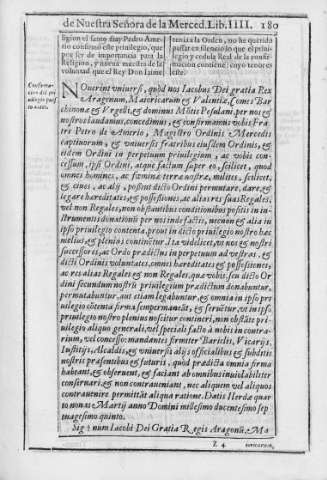 de Nuestra Señora de la Merced. Lib. IIII. 180
ligion el santo fray Pedro Ame-
rio confirmò este priuilegio, que
por ser de importancia para la
Religion, y nueua muestra de la
voluntad que el Rey Don Iaime
tenia a la Orden, no he querido
passar en silencio lo que el priui-
legio y cedula Real de la confir-
macion contiene, cuyo tenor es
este.
Confirma-
cion del pri
uilegio
NOuerint vniuersi, quod nos Iacobus Dei gratia Rex
Aragonum, Maioricarum & Valentiæ, Comes Barc
hinonæ & Vrgelli, & dominus Mõtis Pesulani, per nos &
nostros laudamus, concedimus, & confirmamus vobis Fra
tri Petro de Amerio, Magistro Ordinis Mercedis
captiuorum, & vniuersis fratribus eiusdem Ordinis, &
eidem Ordini in perpetuum priuilegium, ac vobis conce-
ssum, ipsi Ordini, atque factum super eo, scilicet, quod
omnes homines, ac fœminæ terræ nostræ, milites, scilicet,
& ciues, ac alij, possint dicto Ordini permutare, dare, &
legare hæreditates, & possessiones, ac alias res suas Regales,
vel non Regales, non obstantibus conditionibus positis in in-
strumentis donationis per nos inde factis, necnon & alia in ip
so priuilegio contenta, prout in dicto priuilegio nostro hæc
melius & plenius continetur. Ita videlicet, vt nos & nostri
successores, ac Ordo prædictus in perpetuum ad vestras & 
dicti Ordinis voluntates, omnes hæreditates & possessiones,
ac res alias Regales & non Regales, quæ vobis, seu dicto Or
dini secundum nostri priuilegium prædictum donabuntur,
permutabuntur, aut etiam legabuntur, & omnia in ipso pri
uilegio obtenta firma sempermaneãt, & seruẽtur, vt in ipso
priuilegio nostro plenius noscitur contineri, non obstãte pri-
uilegio aliquo generali, vel speciali facto à nobis in contra-
rium, vel concesso: mandantes firmiter Baiulis, Vicarijs,
Iustitijs, Alcaldis, & vniuersis alijs officialibus & subditis
nostris præsentibus & futuris, quòd prædicta omnia firma
habeant, & obseruent, & faciant ab omnibus inuiolabiliter
conseruari, & non contraueniant, nec aliquem vel aliquos
contrauenire permittãt aliqua ratione. Datis Ilerdæ quar
to nonas Martij anno Domini millesimo ducentesimo sep
tuagesimo quinto.
Sig num Iacobi Dei Gratia Regis Aragonũ, Ma
Z 4
ioricarum,